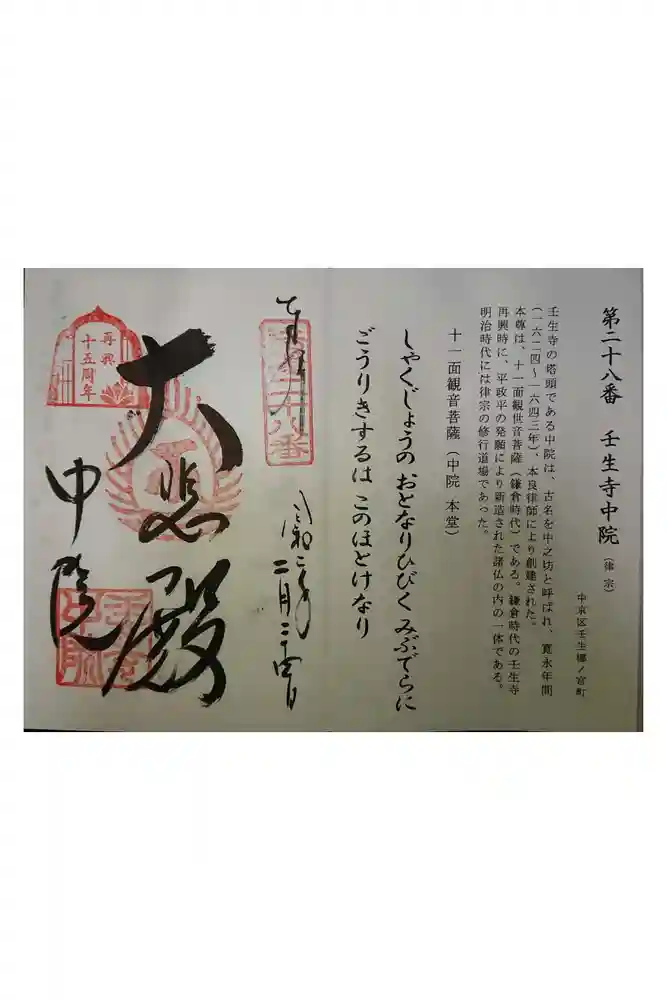 第二十八番　壬生寺中院（律宗）
中京区壬生梛ノ宮町
壬生寺の塔頭である中院は、古名を中之坊と呼ばれ、寛永年間
（一六二四～一六四三年）、本良律師により創建された。
本尊は、十一面観世音菩薩（鎌倉時代）である。鎌倉時代の壬生寺
再興時に、平政平の発願により新造された諸仏の内の一体である。
明治時代には律宗の修行道場であった。
十一面観音菩薩（中院 本堂）
しゃくじょうの おとなりひびく みぶでらに
ごうりきするは このほとけなり
二十八番
令和二年
二月二十四日
大悲殿
中院
再興
十五周年